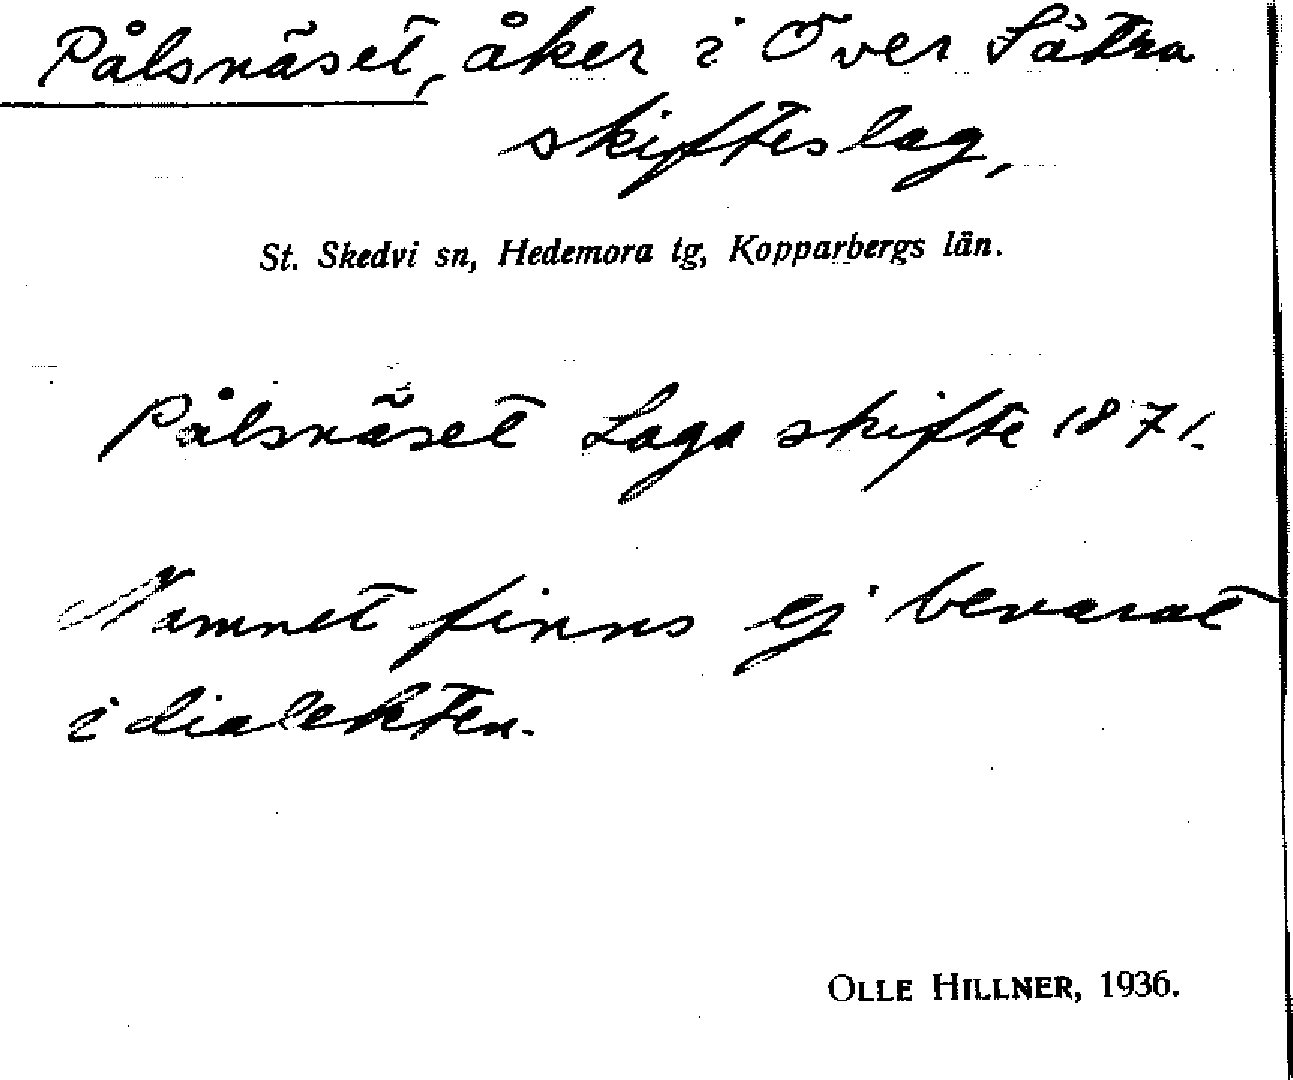 Pålsnäset, åker i Över Sätra
skifteslag,
St. Skedvi sn, Hedemora tg, Kopparbergs län.
Pålsnäset Laga skifte 1871.
Namnet finns ej bevarat
i dialekten.
OLLE HILLNER, 1936.